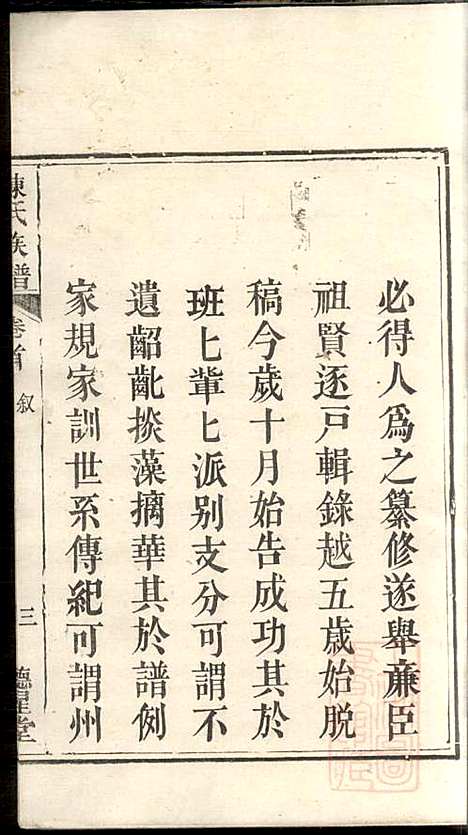 必得人爲之纂修遂舉亷臣
祖賢逐戸輯錄越五歲始脱
稿今歲十月始告成功其於
班匕輩匕派别支分可謂不
遺齠齔掞藻摛華其於譜例
家規家訓世系傳紀可謂州
陳氏族譜
卷首
叙
三
德星堂